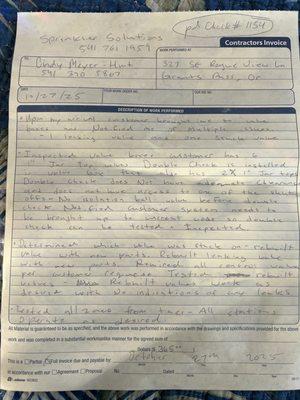 pd check# 1134
Sprinkler Solutions
541 761 1959
Contractors Invoice
WORK PERFORMED AT:
TO:
Cindy Meyer-Hunt
541 320 5807
327 SE Rogue View Ln
Grants Pass, Or
DATE
10/27/25
YOUR WORK ORDER NO.
OUR BID NO.
DESCRIPTION OF WORK PERFORMED
• Upon my arrival customer brought me to valve
boxes and Notified me of multiple issues.
1 leaking valve and one stuck valve
• Inspected valve boxes customer has 6
1" Jar Top valves Double Check is installed
in valve box that also has 2x 1" Jar tops
Double check does Not have adequate clearance
and does not have access to one of the shut
offs - No isolation ball valve before double
check. Notified customer system needs to
be brought up to current code so double
check can be tested + Inspected.
• Determined which valve was stuck on - rebuilt
valve with new parts. Rebuilt leaking valve
with new parts. Removed all
per customer request. Tested rebuilt
valves. Rebuilt valves work as
desired with no indications of any leaks
• Tested all zones from timer - All stations
operate desired.
All Material is guaranteed to be as specified, and the above work was performed in accordance with the drawings and specifications provided for the above
work and was completed in a substantial workmanlike manner for the agreed sum of
Dollars ($ 365.00
This is a Partial Full invoice due and payable by:
October 27th 2025
in accordance with our Agreement Proposal No. Dated